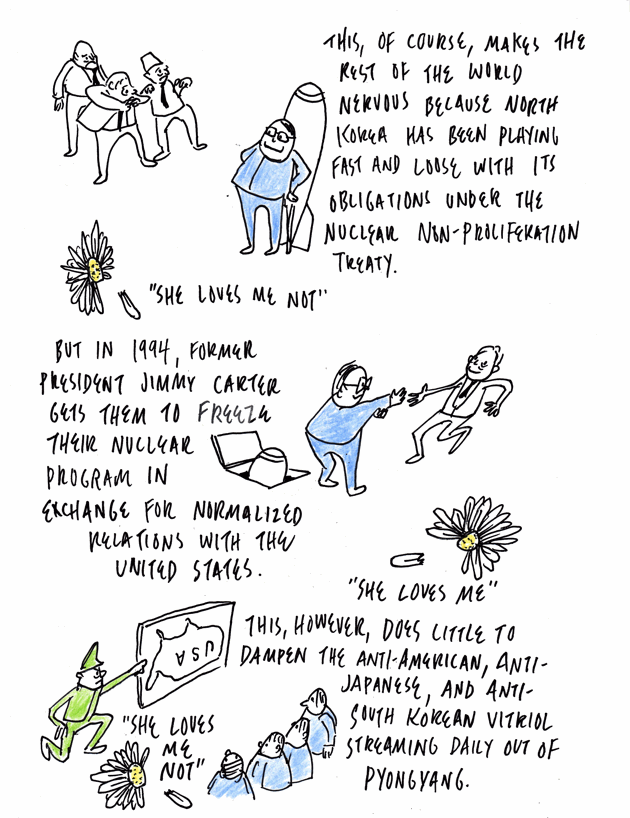 THIS, OF COURSE, MAKES THE
REST OF THE WORLD
NERVOUS BECAUSE NORTH
KOREA HAS BEEN PLAYING
FAST AND LOOSE WITH ITS
OBLIGATIONS UNDER THE
NUCLEAR NON-PROLIFERATION
TREATY.
"SHE LOVES ME NOT"
BUT IN 1994, FORMER
PRESIDENT JIMMY CARTER
GETS THEM TO FREEZE
THEIR NUCLEAR
PROGRAM IN
EXCHANGE FOR NORMALIZED
RELATIONS WITH THE
UNITED STATES.
"SHE LOVES ME"
USA
THIS, HOWEVER, DOES LITTLE TO
DAMPEN THE ANTI-AMERICAN, ANTI-
JAPANESE, AND ANTI-
SOUTH KOREAN VITRIOL
STREAMING DAILY OUT OF
PYONGYANG.
"SHE LOVES
ME
NOT"